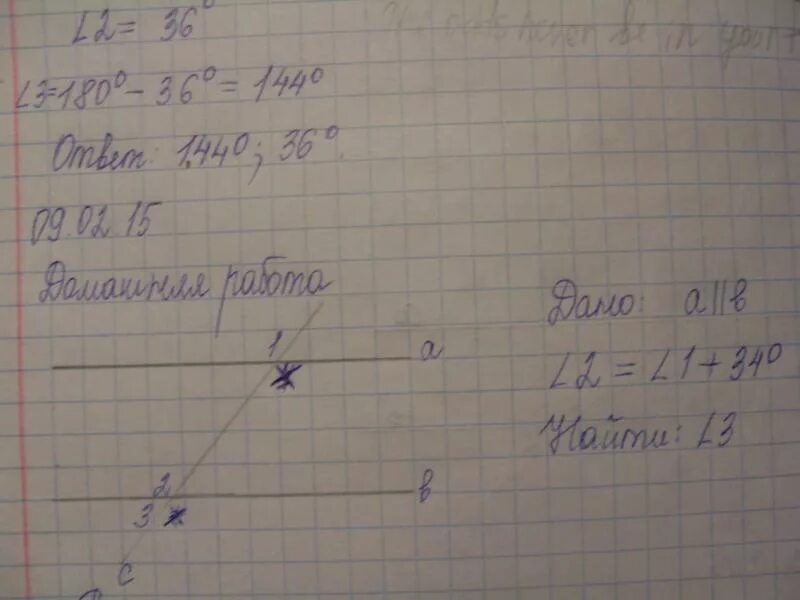 ∠2 = 36°
∠3=180° - 36° = 144°
Ответ: 144°; 36°.
09.02.15
Домашняя работа
1 a
2 в
3
c
Дано: a||в
∠2 = ∠1 + 34°
Найти: ∠3